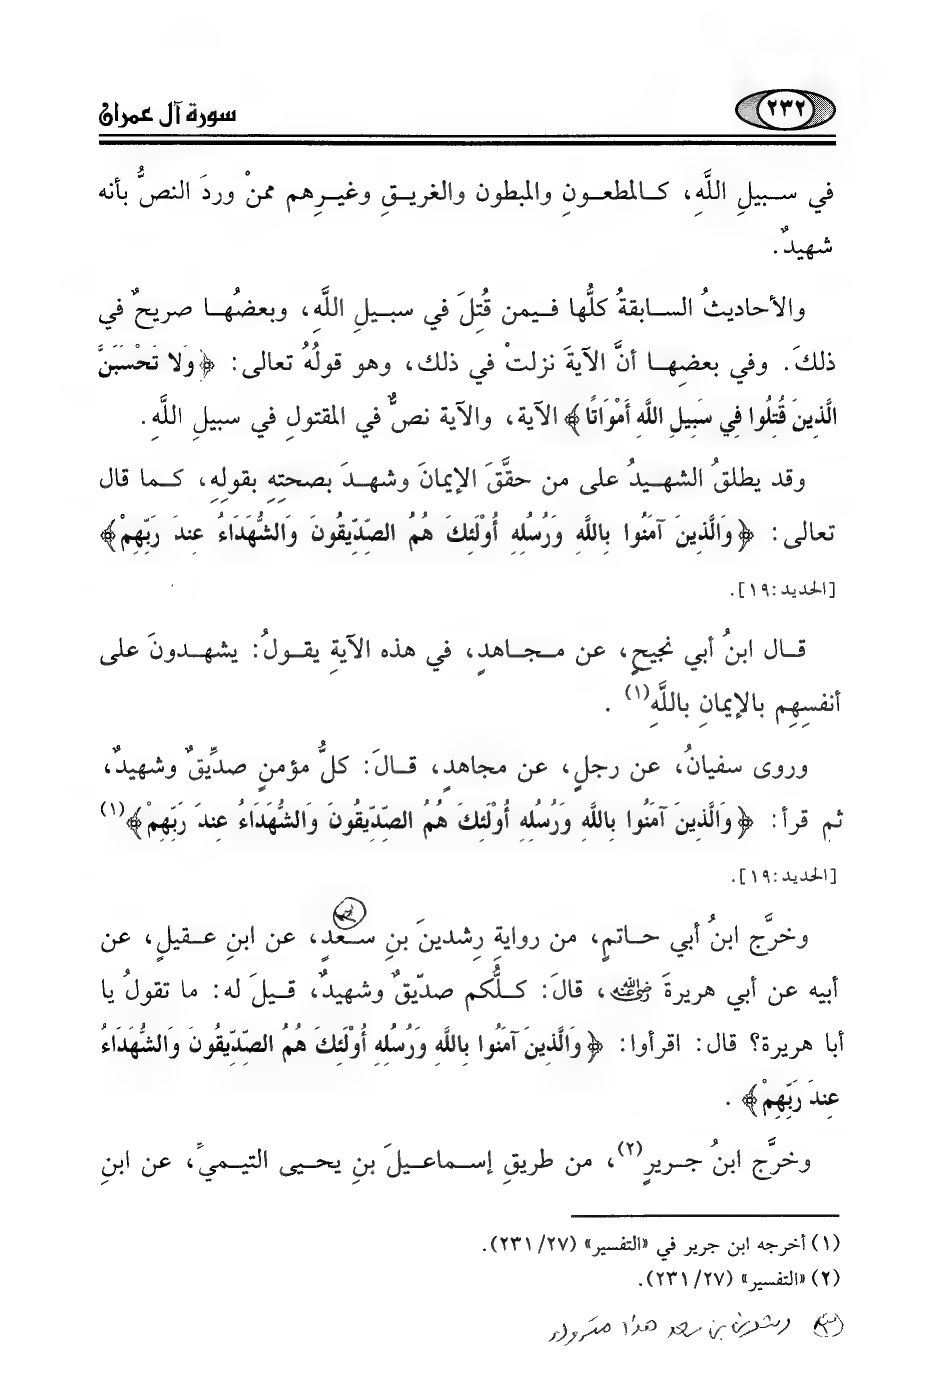 ٢٣٢ سورة آل عمران
في سـبيلِ اللَّهِ، كـالمطعـونِ والمبطون والغريـقِ وغيـرِهم ممنْ وردَ النصُّ بأنه
شهيدٌ.
والأحاديثُ السـابقةُ كلُّها فـيمن قُتِلَ في سبـيلِ اللَّهِ، وبعضُهـا صريحٌ في
ذلكَ. وفي بعضِهـا أنَّ الآيةَ نزلتْ في ذلك، وهو قولُهُ تعالى: ﴿وَلا تَحْسَبَنَّ
الَّذِينَ قُتِلُوا فِي سَبِيلِ اللَّهِ أَمْوَاتًا﴾ الآية، والآية نصٌّ في المقتولِ في سبيلِ اللَّهِ.
وقد يطلقُ الشهيدُ على من حقَّقَ الإيمانَ وشهدَ بصحتِهِ بقولِهِ، كـما قال
تعالى: ﴿وَالَّذِينَ آمَنُوا بِاللَّهِ وَرُسُلِهِ أُوْلَئِكَ هُمُ الصِّدِّيقُونَ وَالشُّهَدَاءُ عِندَ رَبِّهِمْ﴾
[الحديد:١٩].
قـال ابنُ أبي نجيحٍ، عن مـجـاهدٍ، في هذه الآيةِ يقولُ: يشهـدونَ على
أنفسِهِم بالإيمانِ باللَّهِ(١) .
وروى سفيانُ، عن رجلٍ، عن مجاهدٍ، قـالَ: كلُّ مؤمنٍ صدِّيقٌ وشهيدٌ،
ثم قرأ: ﴿وَالَّذِينَ آمَنُوا بِاللَّهِ وَرُسُلِهِ أُوْلَئِكَ هُمُ الصِّدِّيقُونَ وَالشُّهَدَاءُ عِندَ رَبِّهِمْ﴾(١)
[الحديد:١٩].
وخرَّج ابنُ أبي حـاتمٍ، من روايةِ رِشدينَ بنِ سـعدٍ، عن ابنِ عـقيلٍ، عن
أبيه عن أبي هريرةَ رضي الله عنه، قالَ: كـلُّكم صدّيقٌ وشهيدٌ، قـيلَ له: ما تقولُ يا
أبا هريرة؟ قال: اقرأوا: ﴿وَالَّذِينَ آمَنُوا بِاللَّهِ وَرُسُلِهِ أُوْلَئِكَ هُمُ الصِّدِّيقُونَ وَالشُّهَدَاءُ
عِندَ رَبِّهِمْ﴾ .
وخرَّج ابنُ جـريرٍ(٢)، من طريقِ إسـماعيلَ بنِ يحيى التيـميِّ، عن ابنِ
(١) أخرجه ابن جرير في «التفسير» (٢٧/ ٢٣١).
(٢) «التفسير» (٢٧/ ٢٣١).
رشدين بن سعد هذا متروك